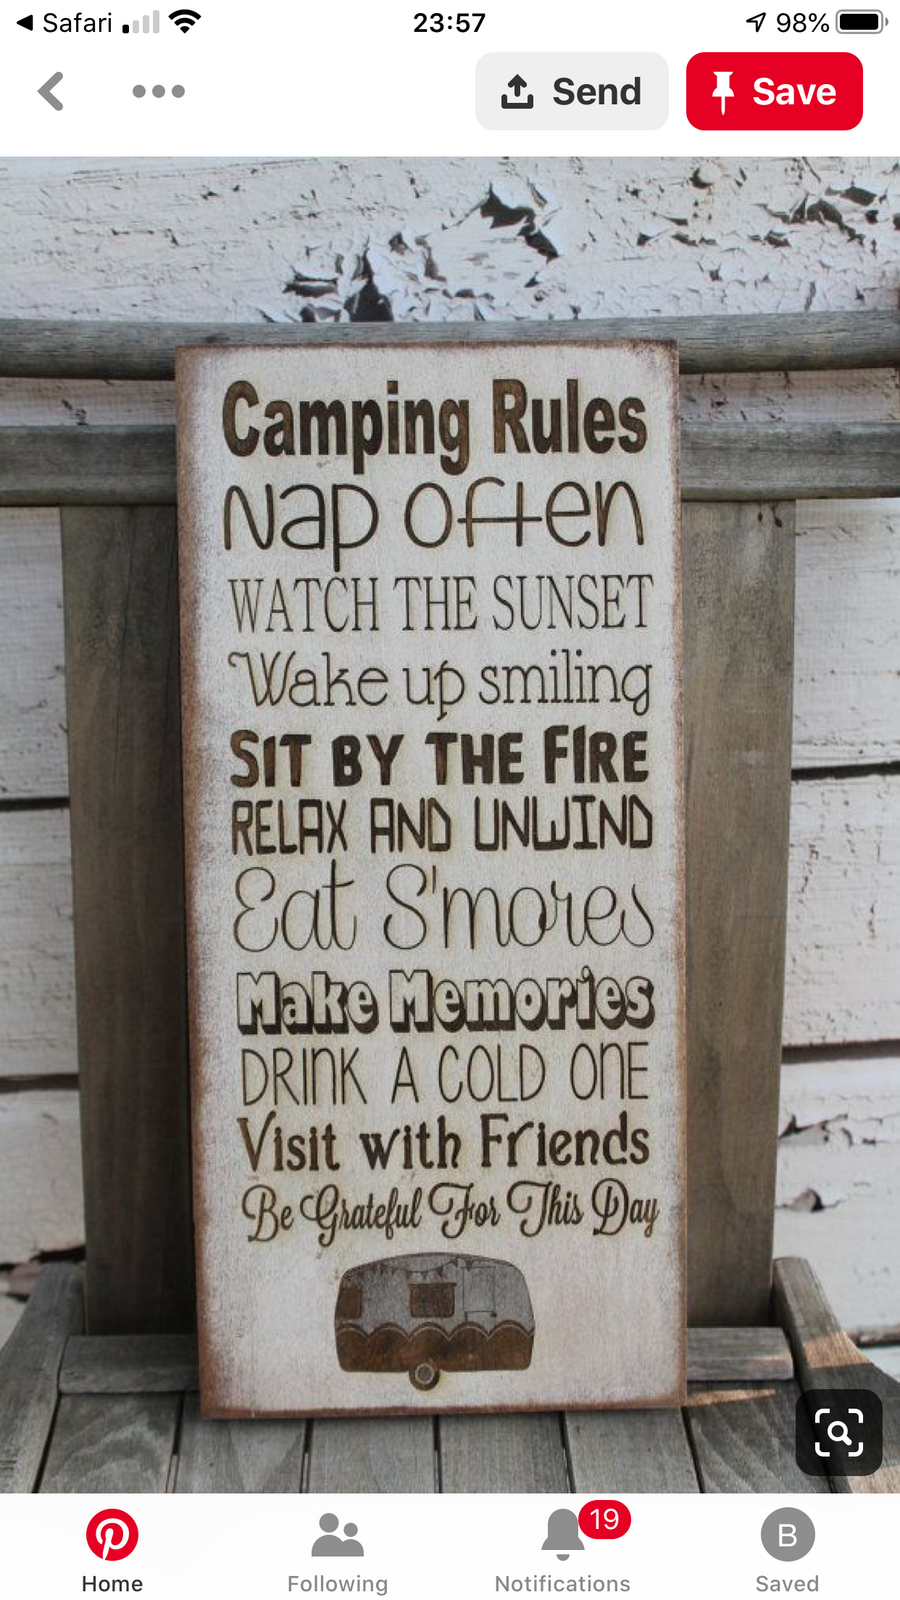 Safari
23:57
98%
Send
Save
Camping Rules
Nap often
WATCH THE SUNSET
Wake up smiling
SIT BY THE FIRE
RELAX AND UNWIND
Eat S'mores
Make Memories
DRINK A COLD ONE
Visit with Friends
Be Grateful For This Day
19
B
Home
Following
Notifications
Saved